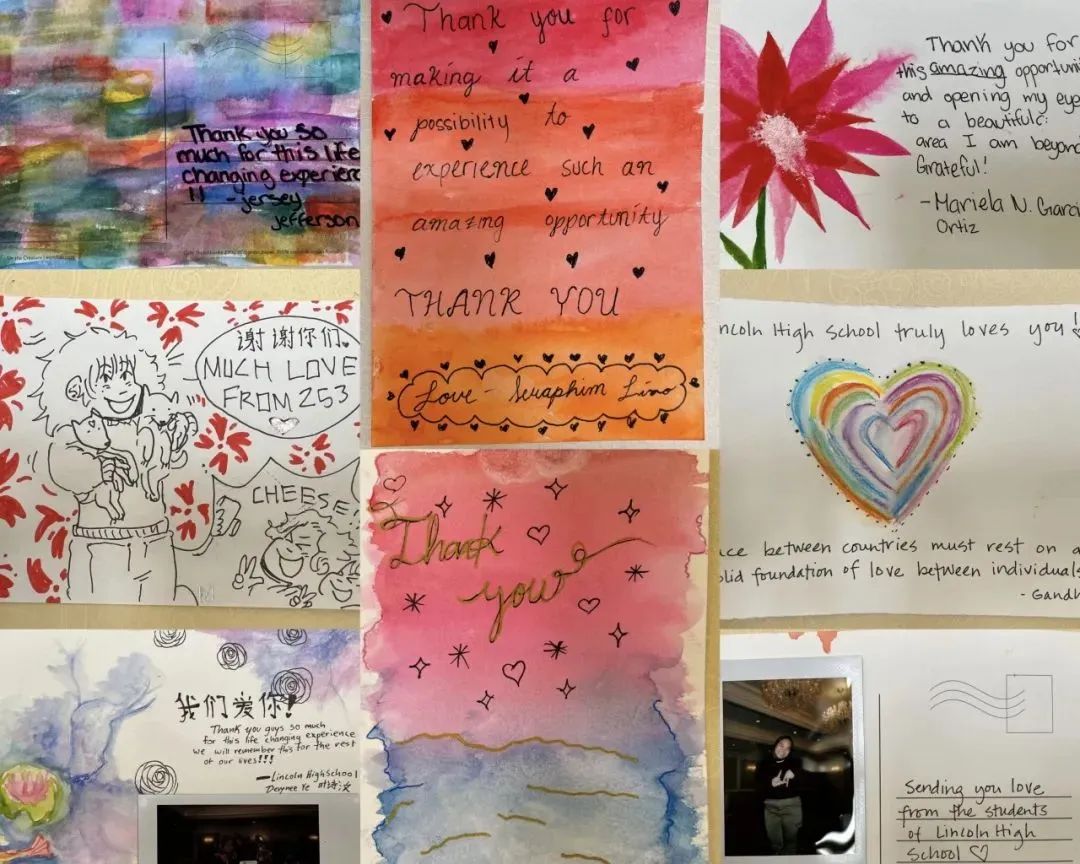 Thank you so
much for this life
changing experienc
!! - jersey
jefferson
Thank you for
making it a
possibility to
experience such an
amazing opportunity
THANK YOU
Love - Seraphim Lino
Thank you for
this amazing opportuni
and opening my eye
to a beautiful
area I am beyon
Grateful!
- Mariela N. Garci
Ortiz
谢谢你们
MUCH LOVE
FROM 253
CHEESE
Thank
you
ncoln High school truly loves you!
ce between countries must rest on a
lid foundation of love between individuals
- Gandh
我们爱你!
Thank you guys so much
for this life changing experience
we will remember this for the rest
of our lives!!!
— Lincoln High School
Sending you love
from the students
of Lincoln High
School ♡